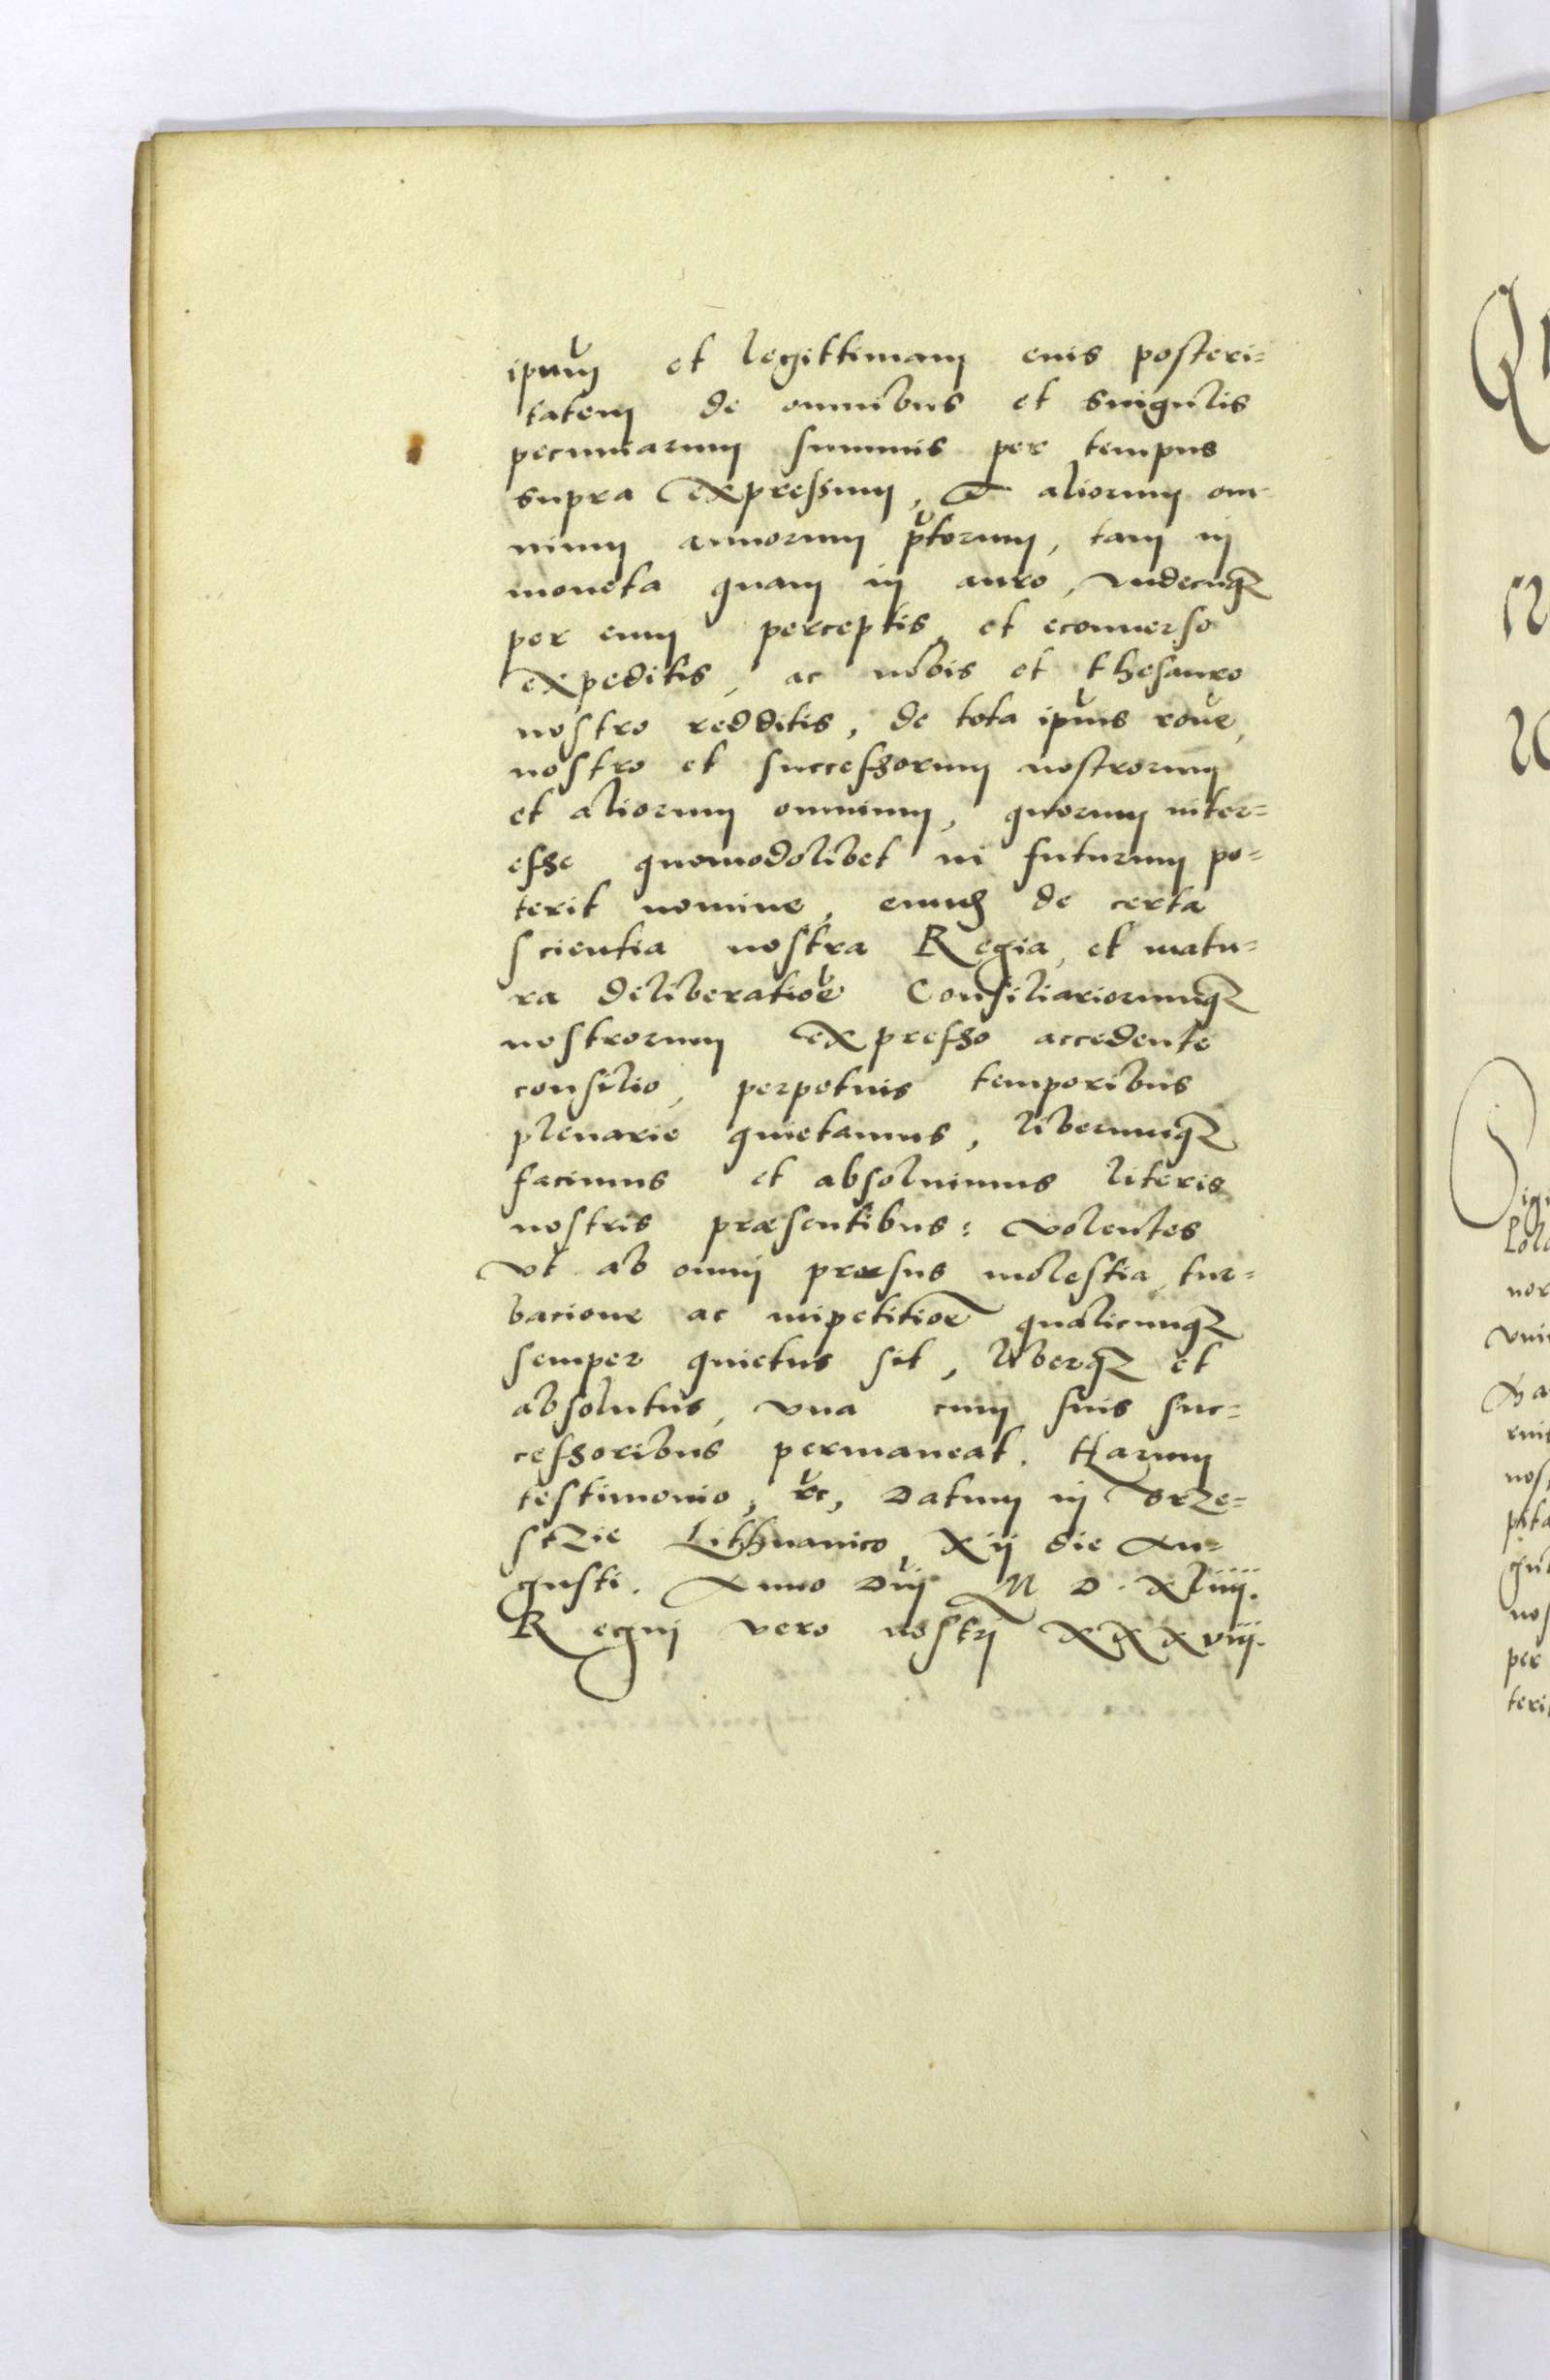 ipsum et legittimam eius posteri=
tatem de omnibus et singulis
pecuniarum summis per tempus
supra expressum, et aliorum om-
nium annorum pñtorum, tam in
moneta quam in auro, vndecunq
per eum perceptis, et econuerso
expeditis, ac nobis et thesauro
nostro redditis, de tota ipsius rõne,
nostro et successorum nostrorum
et aliorum omnium, quorum inter=
esse quomodolibet in futurum po=
terit nomine, eundem de certa
scientia nostra Regia, et matu=
ra deliberatione Consiliariorumq
nostrorum expresso accedente
consilio, perpetuis temporibus
plenarie quietamus, liberumq
facimus et absoluimus literis
nostris præsentibus: volentes
vt ab omni prorsus molestia, tur=
bacione ac impetitione qualicunq
semper quietus sit, liberq et
absolutus, vna cum suis suc=
cessoribus permaneat. Harum
testimonio, etc, Datum in Brze=
stzie Lithuanico, xij die Au=
gusti. Anno Dñi M D. xliiij.
Regni vero nostri xxxviij.